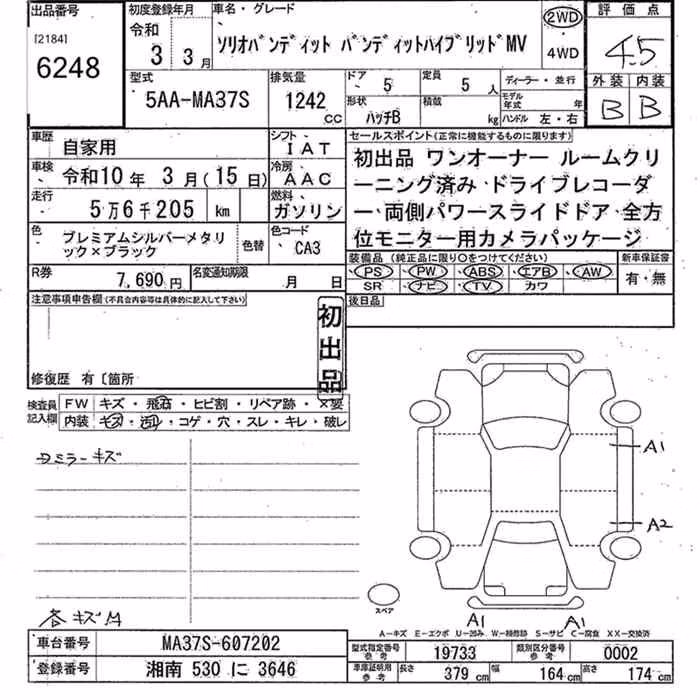 出品番号
[2184]
6248
初度登録年月
令和
3 3月
車名・グレード
ソリオバンディット バンディットハイブリッドMV
2WD
・
4WD
評価点
4.5
外装 内装
B B
型式
5AA-MA37S
排気量
1242 CC
ドア 5
形状 ハッチB
定員 5 人
積載 kg
ディーラー・並行
モデル年式 年
ハンドル 左・右
車歴
自家用
シフト
IAT
車検
令和10年 3月(15日)
冷房
AAC
走行
5万6千205 km
燃料
ガソリン
色
プレミアムシルバーメタリ
ック×ブラック
色替
色コード
CA3
R券
7,690円
名変通知期限
月 日
セールスポイント(正常に機能するものに限ります)
初出品 ワンオーナー ルームクリ
ーニング済み ドライブレコーダ
ー 両側パワースライドドア 全方
位モニター用カメラパッケージ
装備品 (純正品に限り○をつけてください)
PS PW ABS エアB AW
SR ナビ TV カワ
新車保証書
有・無
後日品
注意事項申告欄(不具合内容等は具体的に記入して下さい)
初出品
修復歴 有〔箇所
検査員
記入欄
FW キズ・飛石・ヒビ割・リペア跡・×要
内装 キズ・汚れ・コゲ・穴・スレ・キレ・破レ
ミラーキズ
各キズM
A1
A2
スペア
A1 A1
A-キズ E-エクボ U-凹み W-補修跡 S-サビ C-腐食 XX-交換済
車台番号
MA37S-607202
登録番号
湘南 530 に 3646
型式指定番号
参考
19733
類別区分番号
参考
0002
車庫証明用
参考
長さ 379 cm 幅 164 cm 高さ 174 cm